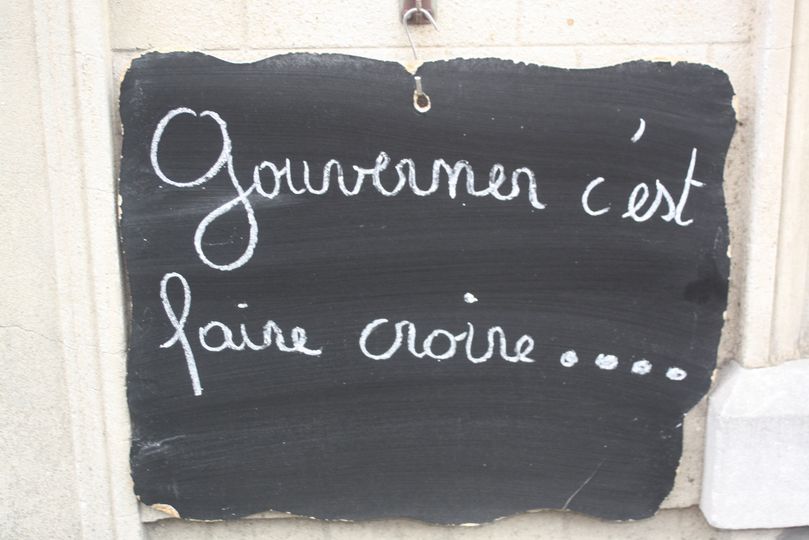 Gouverner c'est
faire croire....